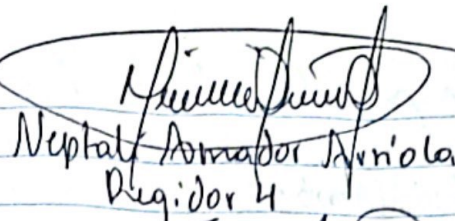 Neptalí Amador Arriola
Regidor 4